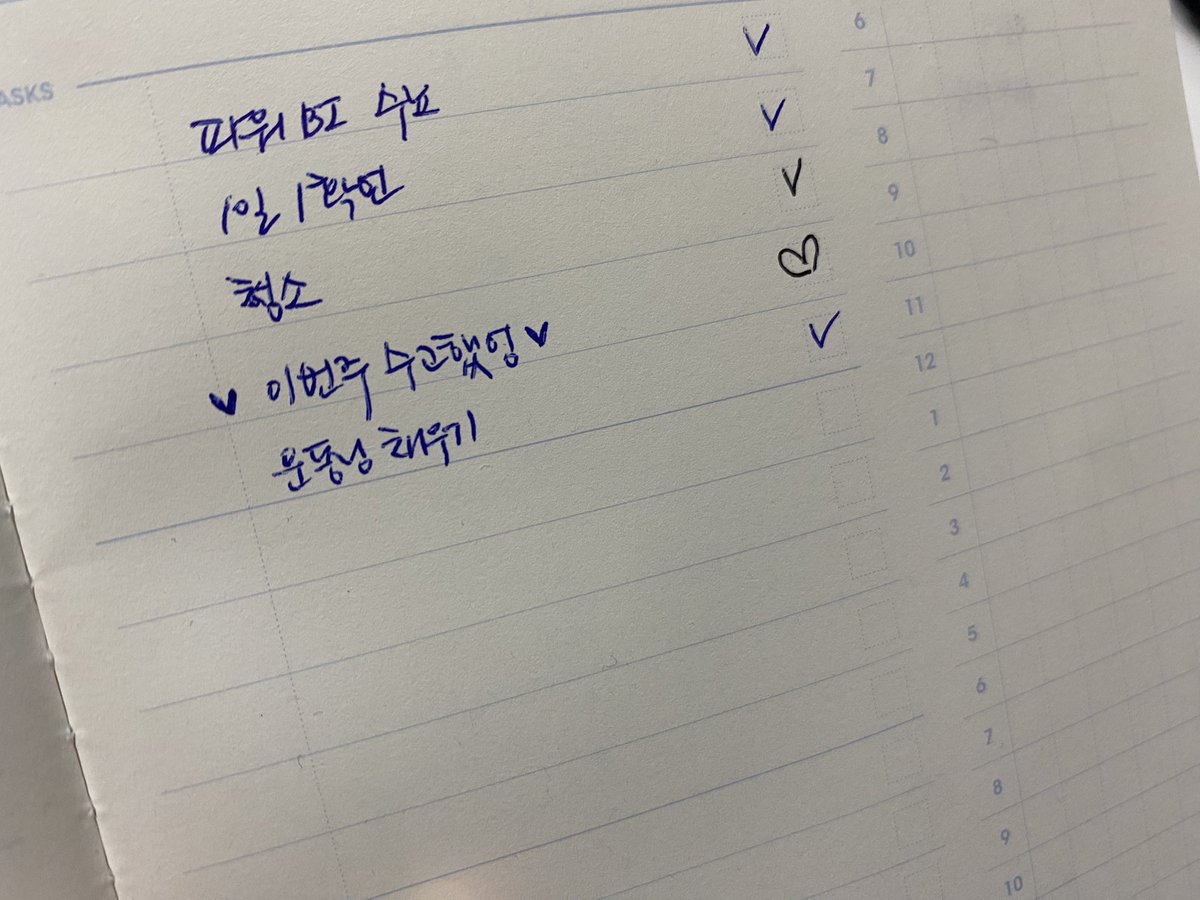 ASKS
파워 BI 수료
1일 1확언
청소
♥ 이번주 수고했엉 ♥
운동닝 채우기
6
7
8
9
10
11
12
1
2
3
4
5
6
7
8
9
10